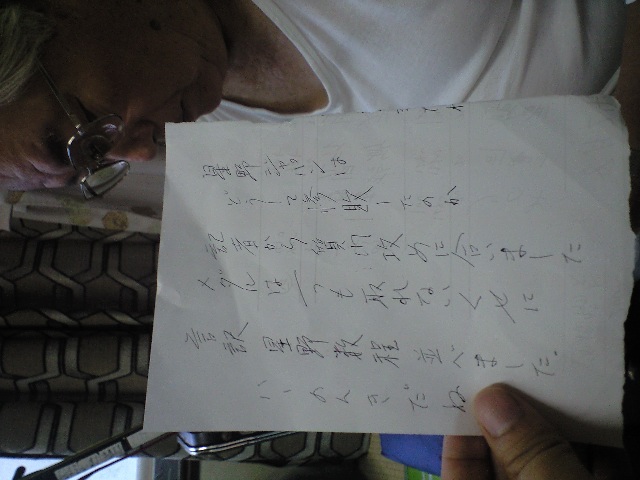 星野ジャパンは
どうして惨敗したのか
記者から質問攻めに合いました
メダルは一つも取れないくせに
言訳 星野数程 並べました。
ハ のんきだね